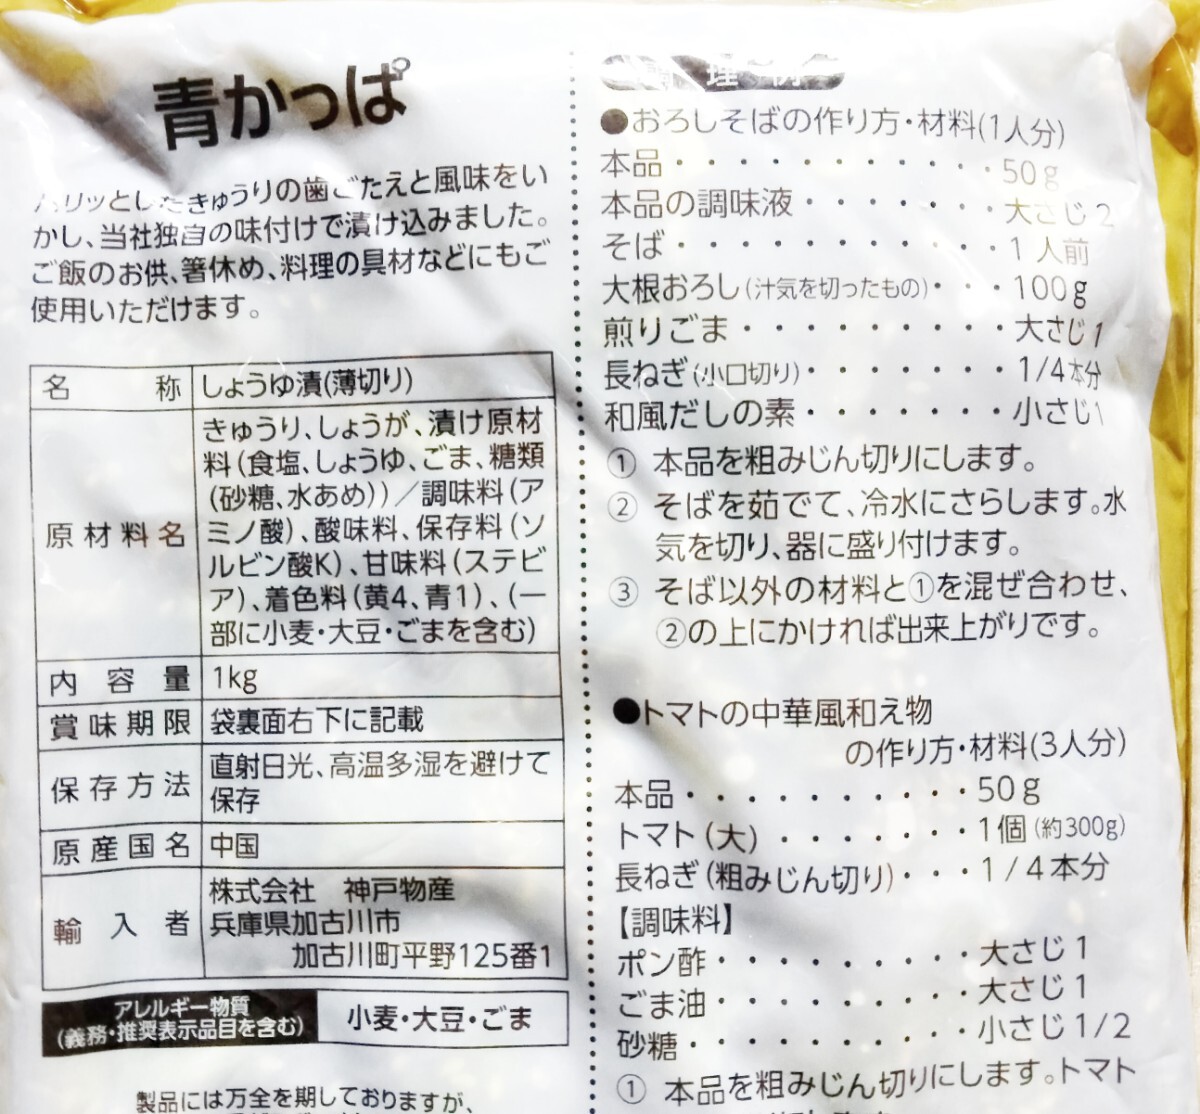 青かっぱ
パリッとしたきゅうりの歯ごたえと風味をい
かし、当社独自の味付けで漬け込みました。
ご飯のお供、箸休め、料理の具材などにもご
使用いただけます。
名称 しょうゆ漬(薄切り)
原材料名 きゅうり、しょうが、漬け原材
料(食塩、しょうゆ、ごま、糖類
(砂糖、水あめ))／調味料(ア
ミノ酸)、酸味料、保存料(ソ
ルビン酸K)、甘味料(ステビ
ア)、着色料(黄4、青1)、(一
部に小麦・大豆・ごまを含む)
内容量 1kg
賞味期限 袋裏面右下に記載
保存方法 直射日光、高温多湿を避けて
保存
原産国名 中国
輸入者 株式会社 神戸物産
兵庫県加古川市
加古川町平野125番1
アレルギー物質
(義務・推奨表示品目を含む)
小麦・大豆・ごま
製品には万全を期しておりますが、
調理例
●おろしそばの作り方・材料(1人分)
本品・・・・・・・・・・・50g
本品の調味液・・・・・・・大さじ2
そば・・・・・・・・・・・1人前
大根おろし(汁気を切ったもの)・・・100g
煎りごま・・・・・・・・・大さじ1
長ねぎ(小口切り)・・・・・・・1/4本分
和風だしの素・・・・・・・小さじ1
① 本品を粗みじん切りにします。
② そばを茹でて、冷水にさらします。水
気を切り、器に盛り付けます。
③ そば以外の材料と①を混ぜ合わせ、
②の上にかければ出来上がりです。
●トマトの中華風和え物
の作り方・材料(3人分)
本品・・・・・・・・・・・50g
トマト(大)・・・・・・・1個(約300g)
長ねぎ(粗みじん切り)・・・1/4本分
【調味料】
ポン酢・・・・・・・・・大さじ1
ごま油・・・・・・・・・大さじ1
砂糖・・・・・・・・・・小さじ1/2
① 本品を粗みじん切りにします。トマト